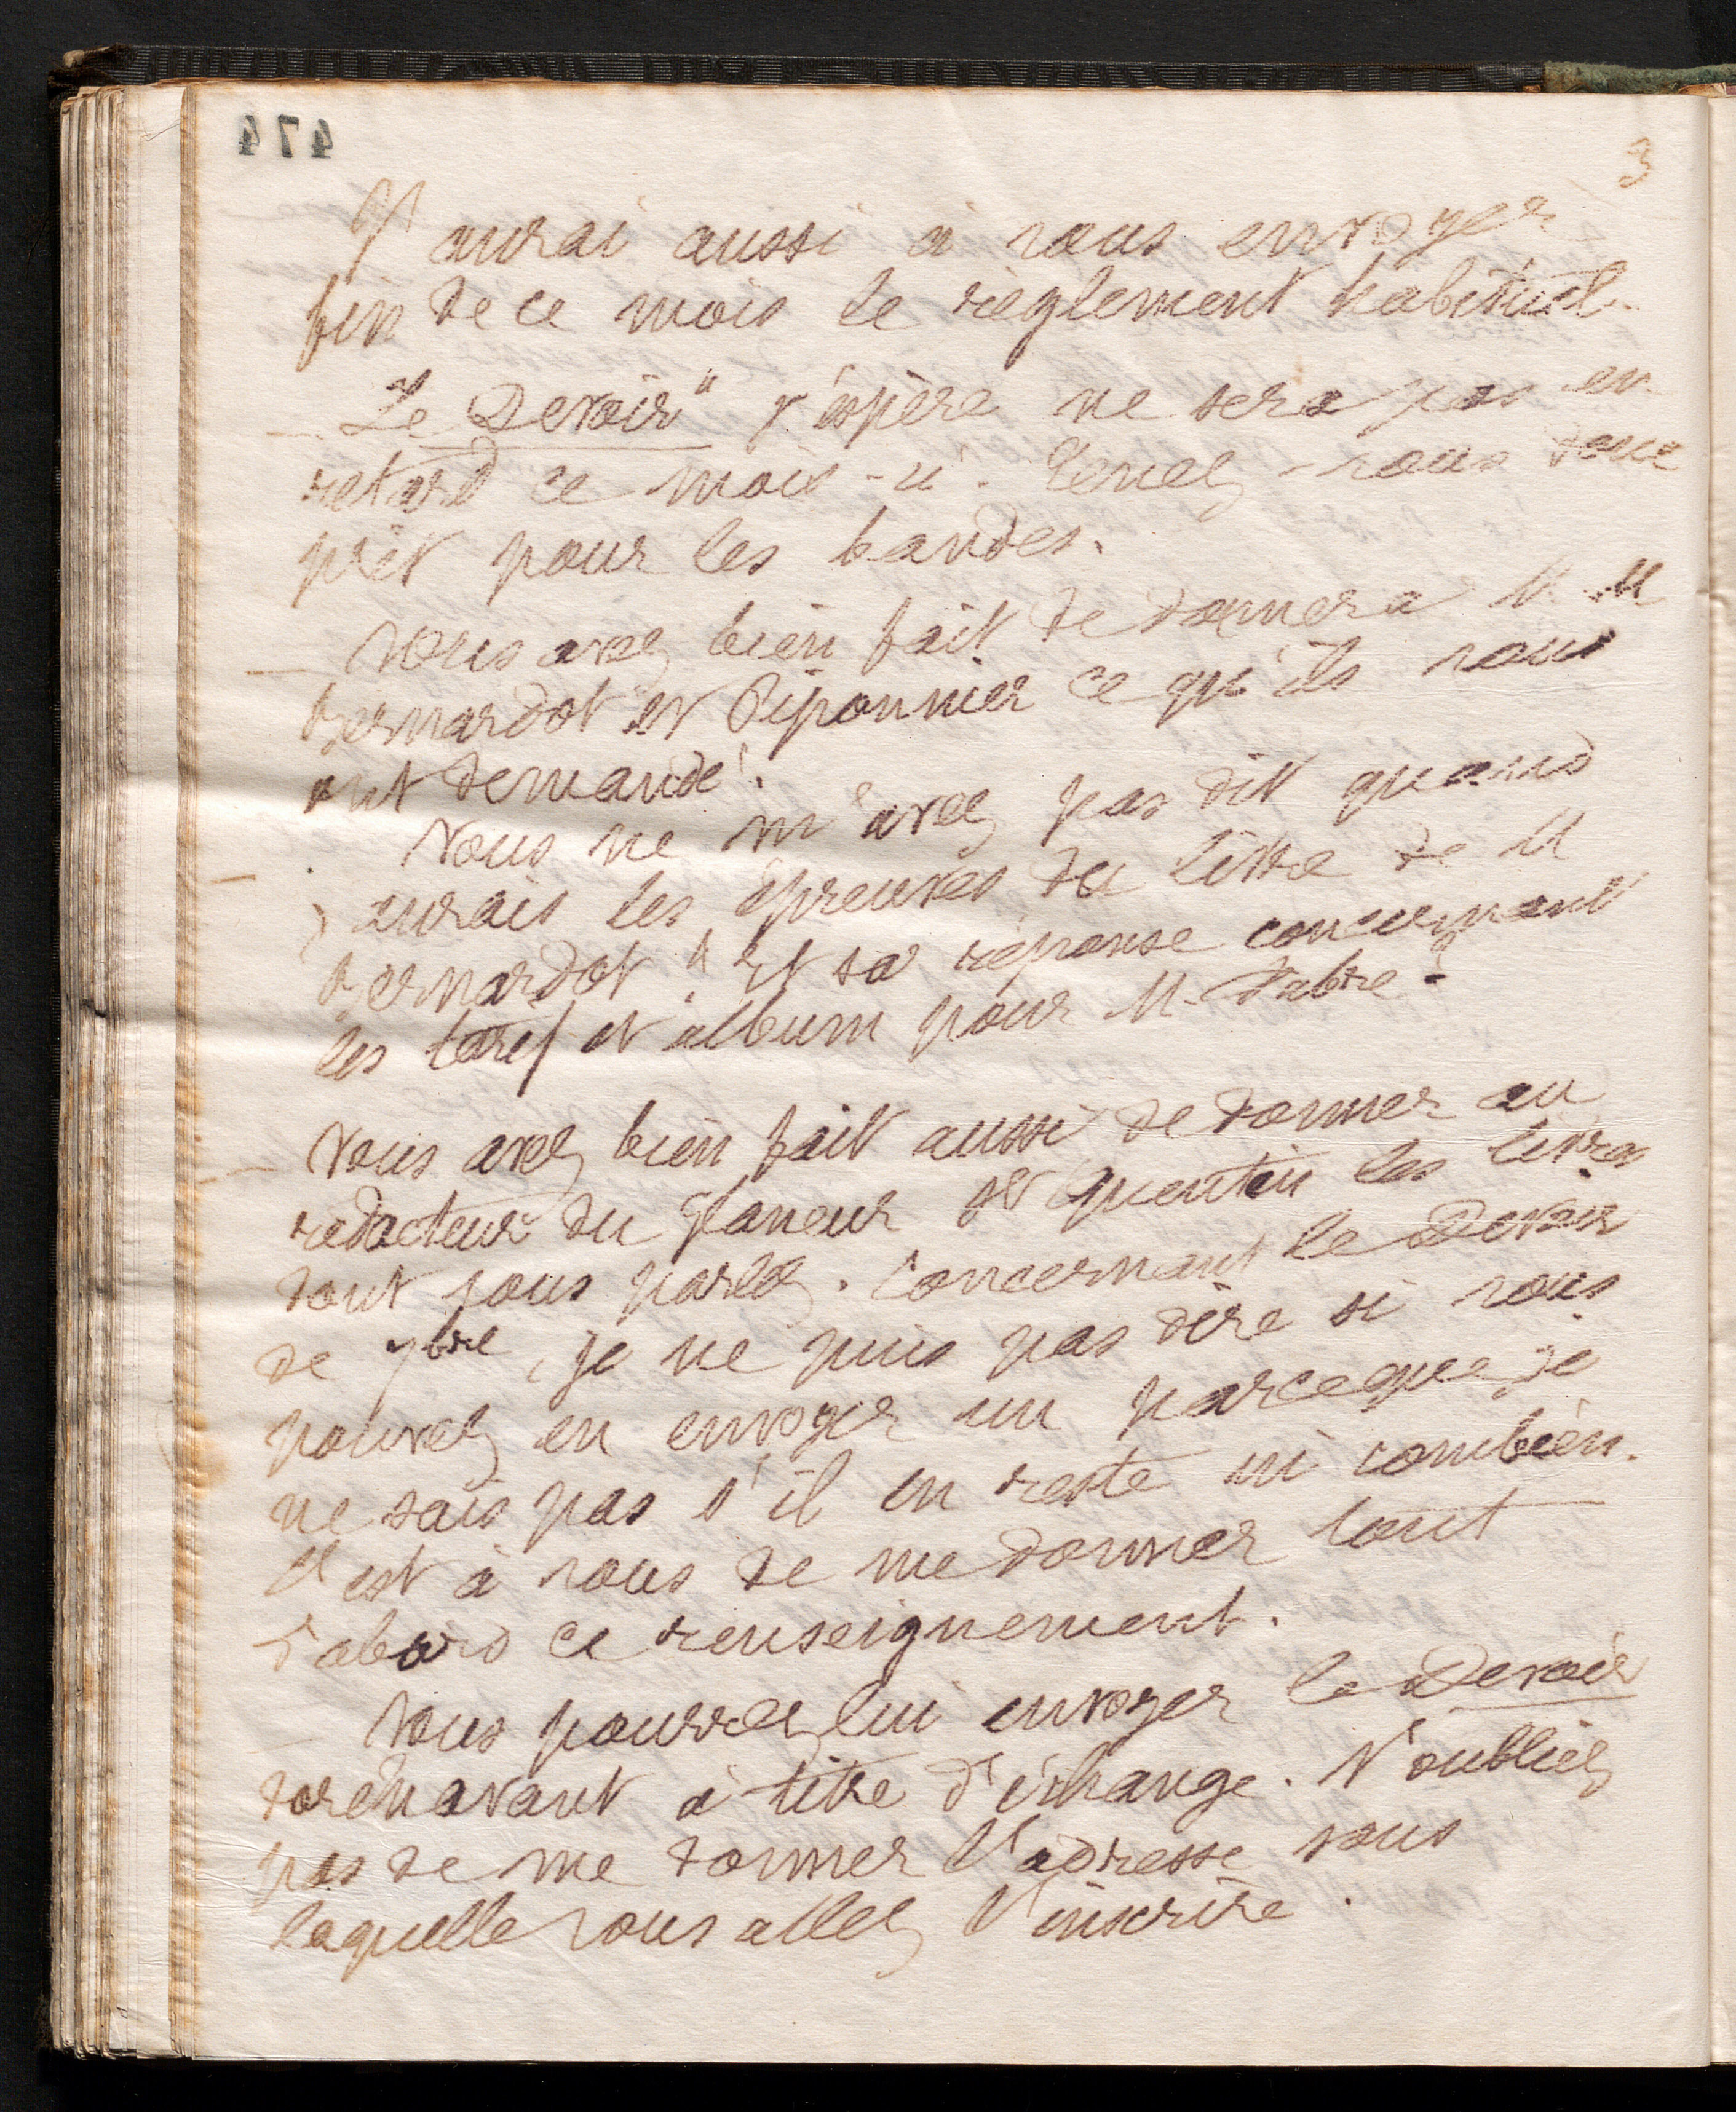 474
3
J'aurai aussi à vous envoyer
fin de ce mois le règlement habituel.
— Le Devoir" j'espère ne sera pas en
retard ce mois-ci. Tenez-vous donc
prêt pour les bandes.
— Vous avez bien fait de donner à M. M
Bernardot et Piponnier ce qu'ils vous
ont demandé.
— Vous ne m'avez pas dit quand
j'aurais les épreuves du livre de M
Bernardot" Et sa réponse concernant
les tarif et album pour M. Fabre?
— Vous avez bien fait aussi de donner au
rédacteur du Glaneur St Quentin les livres
dont vous parlez. Concernant le Devoir
de 7bre, je ne puis pas dire si vous
pouvez en envoyer un parceque je
ne sais pas s'il en reste ni combien.
C'est à vous de me donner tout
d'abord ce renseignement.
— Vous pourrez lui envoyer le Devoir
dorénavant à titre d'échange. N'oubliez
pas de me donner l'adresse sous
laquelle vous allez l'inscrire.